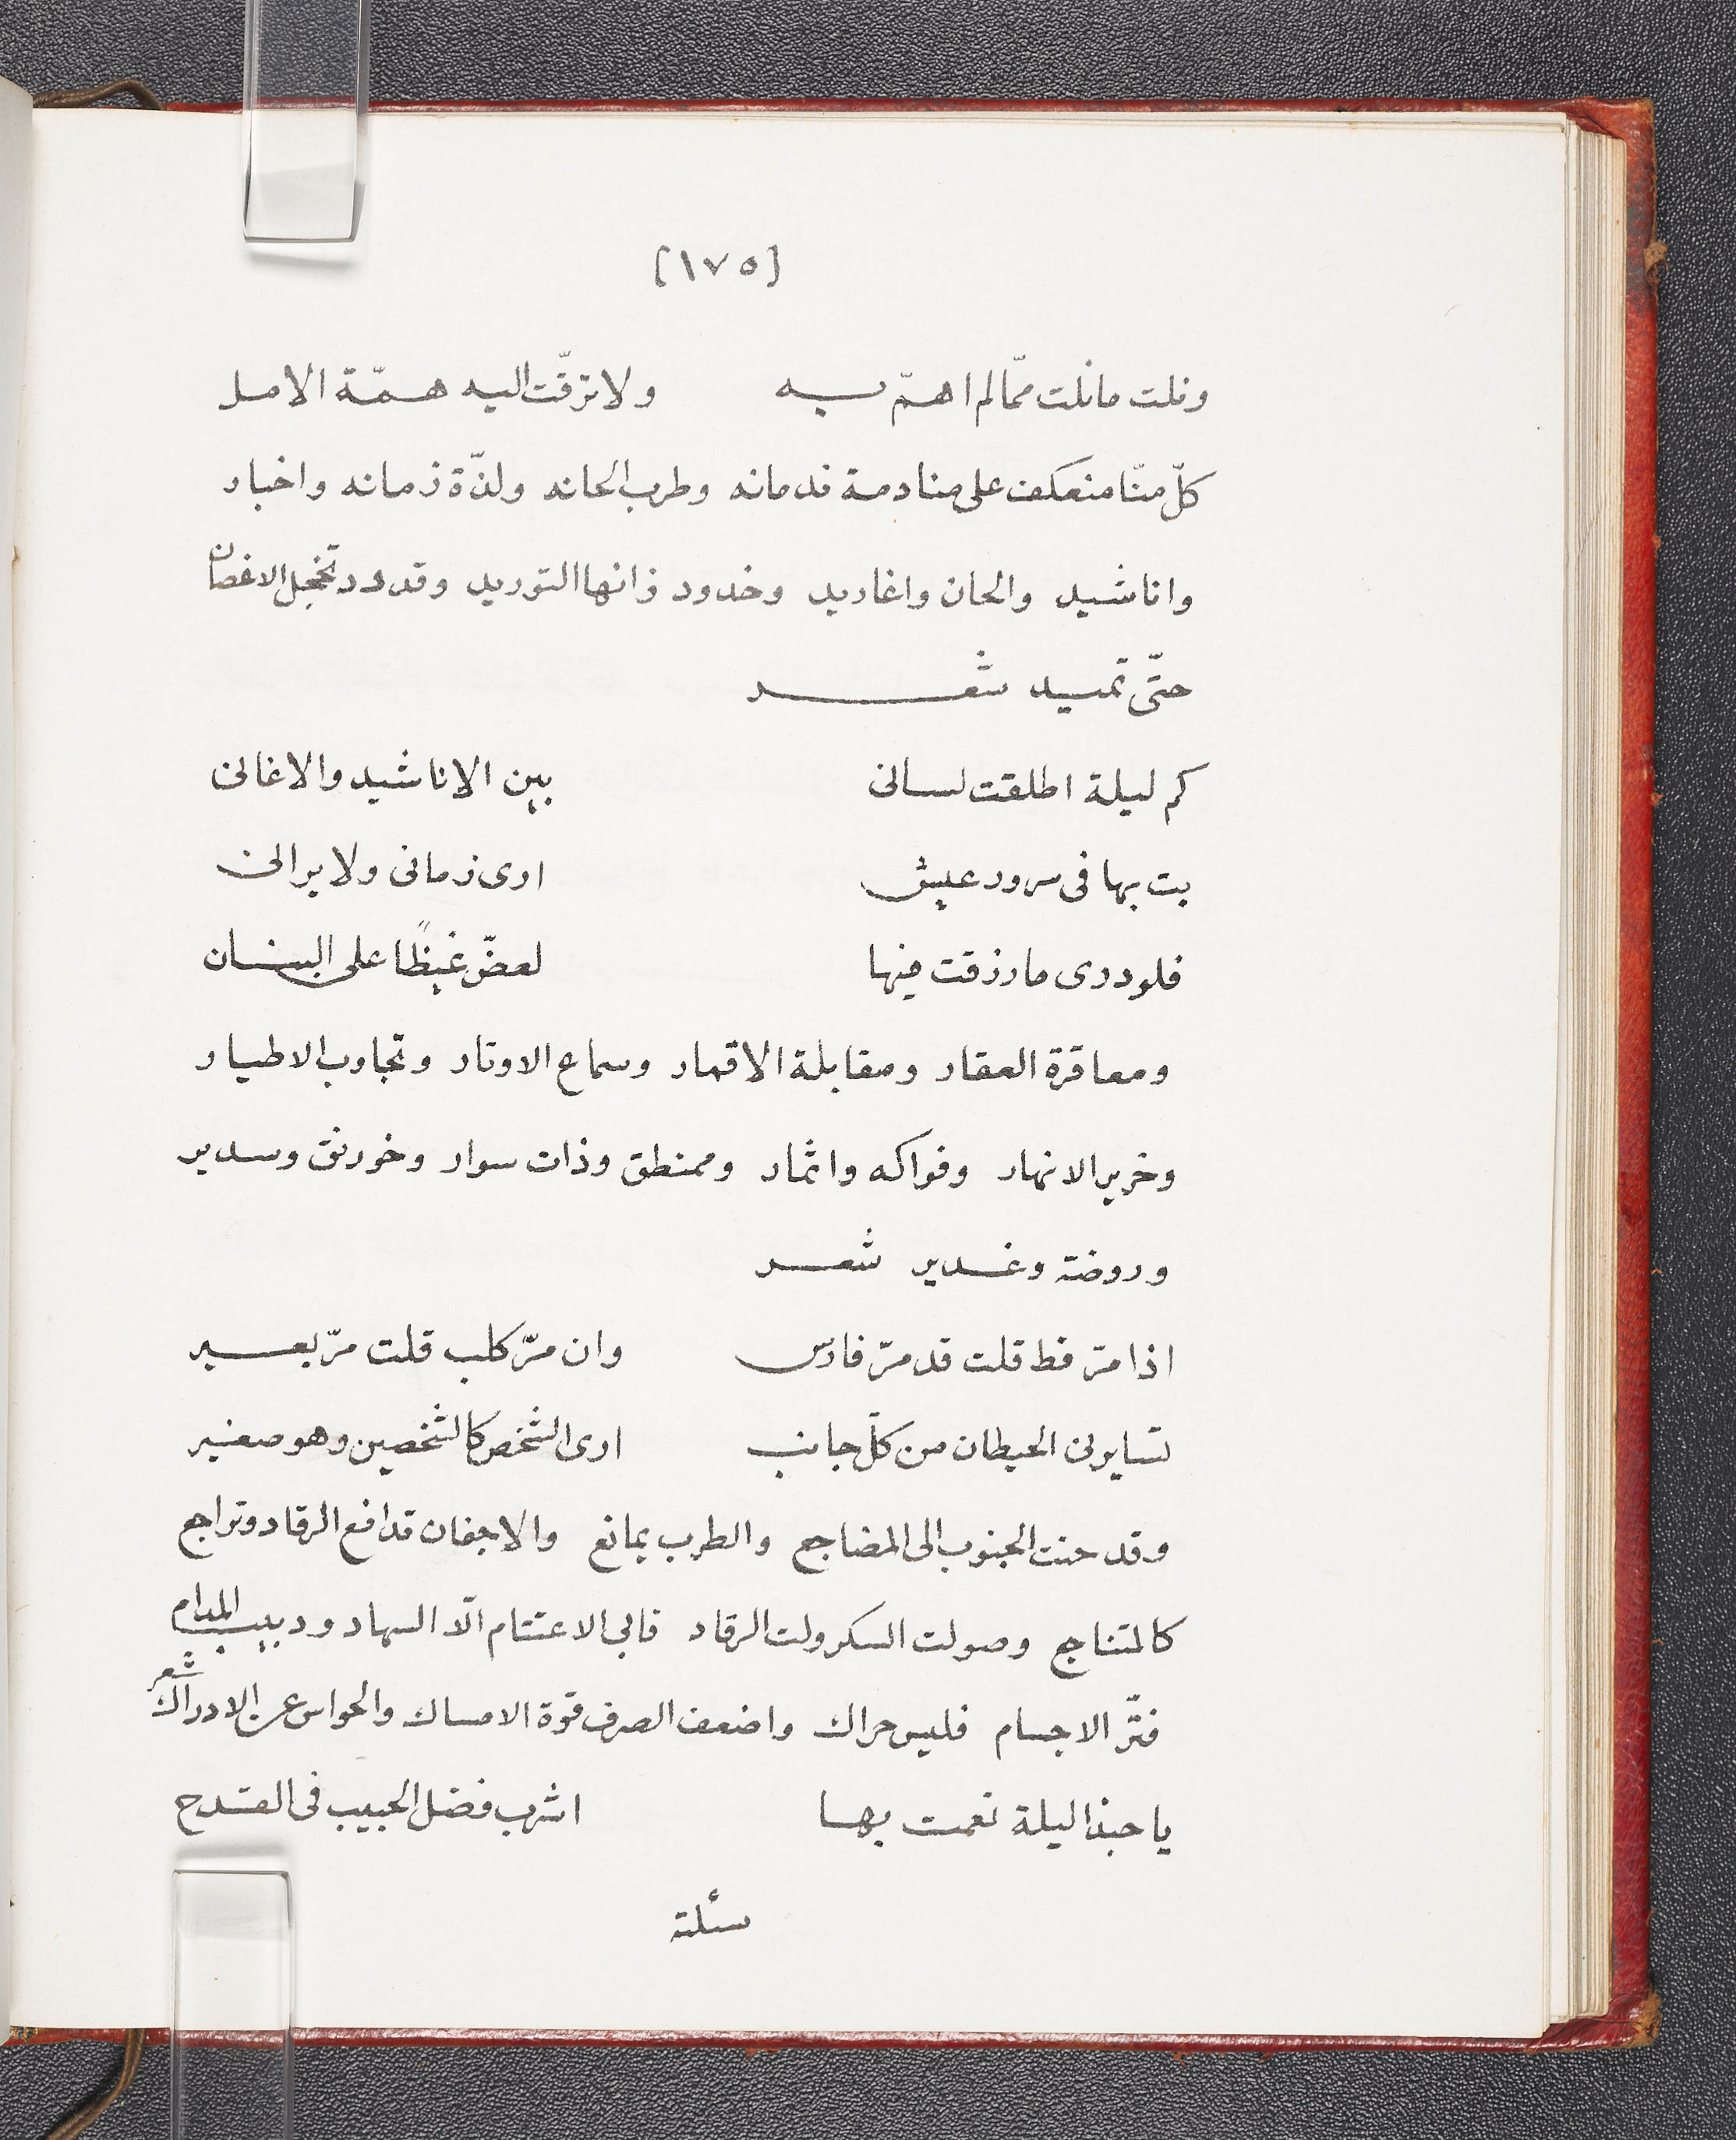 [١٧٥]
ونلت مانلت ممّا لم اهمّ به ولا ترقّت اليه همّة الامل
كلّ منّا منعكف على منادمة ندمانه وطرب الحانه ولذّة زمانه واخبار
واناشيد والحان واغاريد وخدود زانها التوريد وقدود تخجل الاغصان
حتّى تميد شعر
كم ليلة اطلقت لسانى بين الاناشيد والاغانى
بت بها فى سرور عيش ارى زمانى ولا يرانى
فلو درى ما رزقت فيها لعضّ غيظًا على البنان
ومعاقرة العقار ومقابلة الاقمار وسماع الاوتار وتجاوب الاطيار
وخرير الانهار وفواكه واثمار وممنطق وذات سوار وخورنق وسدير
وروضة وغدير شعر
اذا مرّ قط قلت قد مرّ فارس وان مرّ كلب قلت مرّ بعير
تسايرنى الحيطان من كلّ جانب ارى الشخص كالشخصين وهو صغير
وقد حنت الجنوب الى المضاجع والطرب يمانع والاجفان تدافع الرقاد وتراجع
كالمتناجع وصولت السكر ولت الرقاد فابى الاعتتام الّا السهاد ودبيب المدام
فتّر الاجسام فليس حراك واضعف الصرف قوّة الامساك والحواس عن الادراك شعر
يا حبذا ليلة نعمت بها اشرب فضل الحبيب فى القدح
سئلته